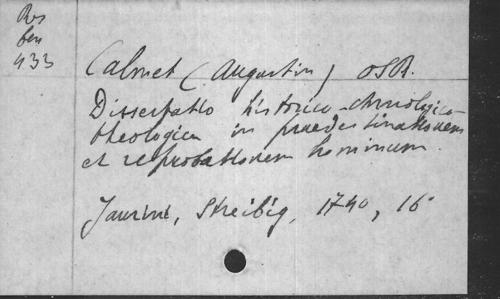 Res
ben
433
Calmet (Augustin) OSB.
Dissertatio historico-chronologico-
theologica in praedestinationem
et reprobationem hominum.
Jaurini, Streibig, 1740, 16°